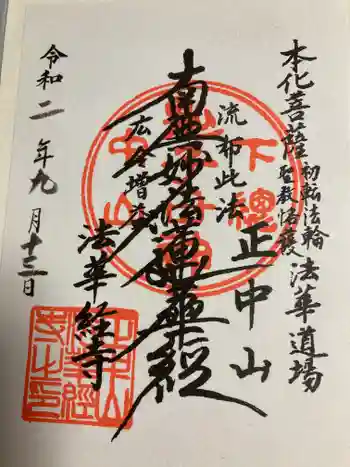 本化菩薩初転法輪
聖教格護法華道場
正中山
流布此法
南無妙法蓮華経
広令増益
法華経寺
令和二年九月十三日
下總
中山